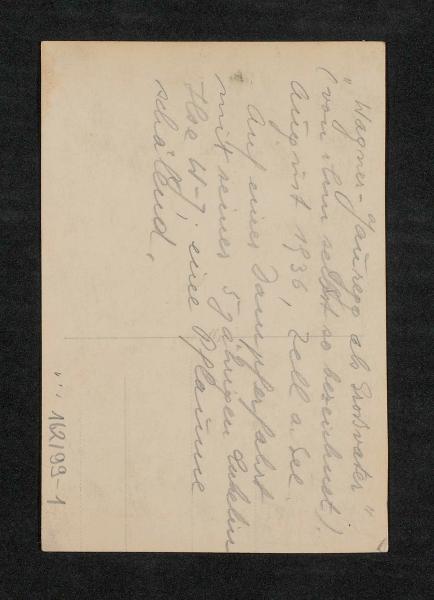 "Wagner-Jauregg als Großvater"
(von ihm selbst so bezeichnet).
August 1936, Zell a. See.
Auf einer Dampferfahrt
mit seiner 5 jährigen Enkelin
Ilse W-J, eine Pflaume
schälend.
162199-1